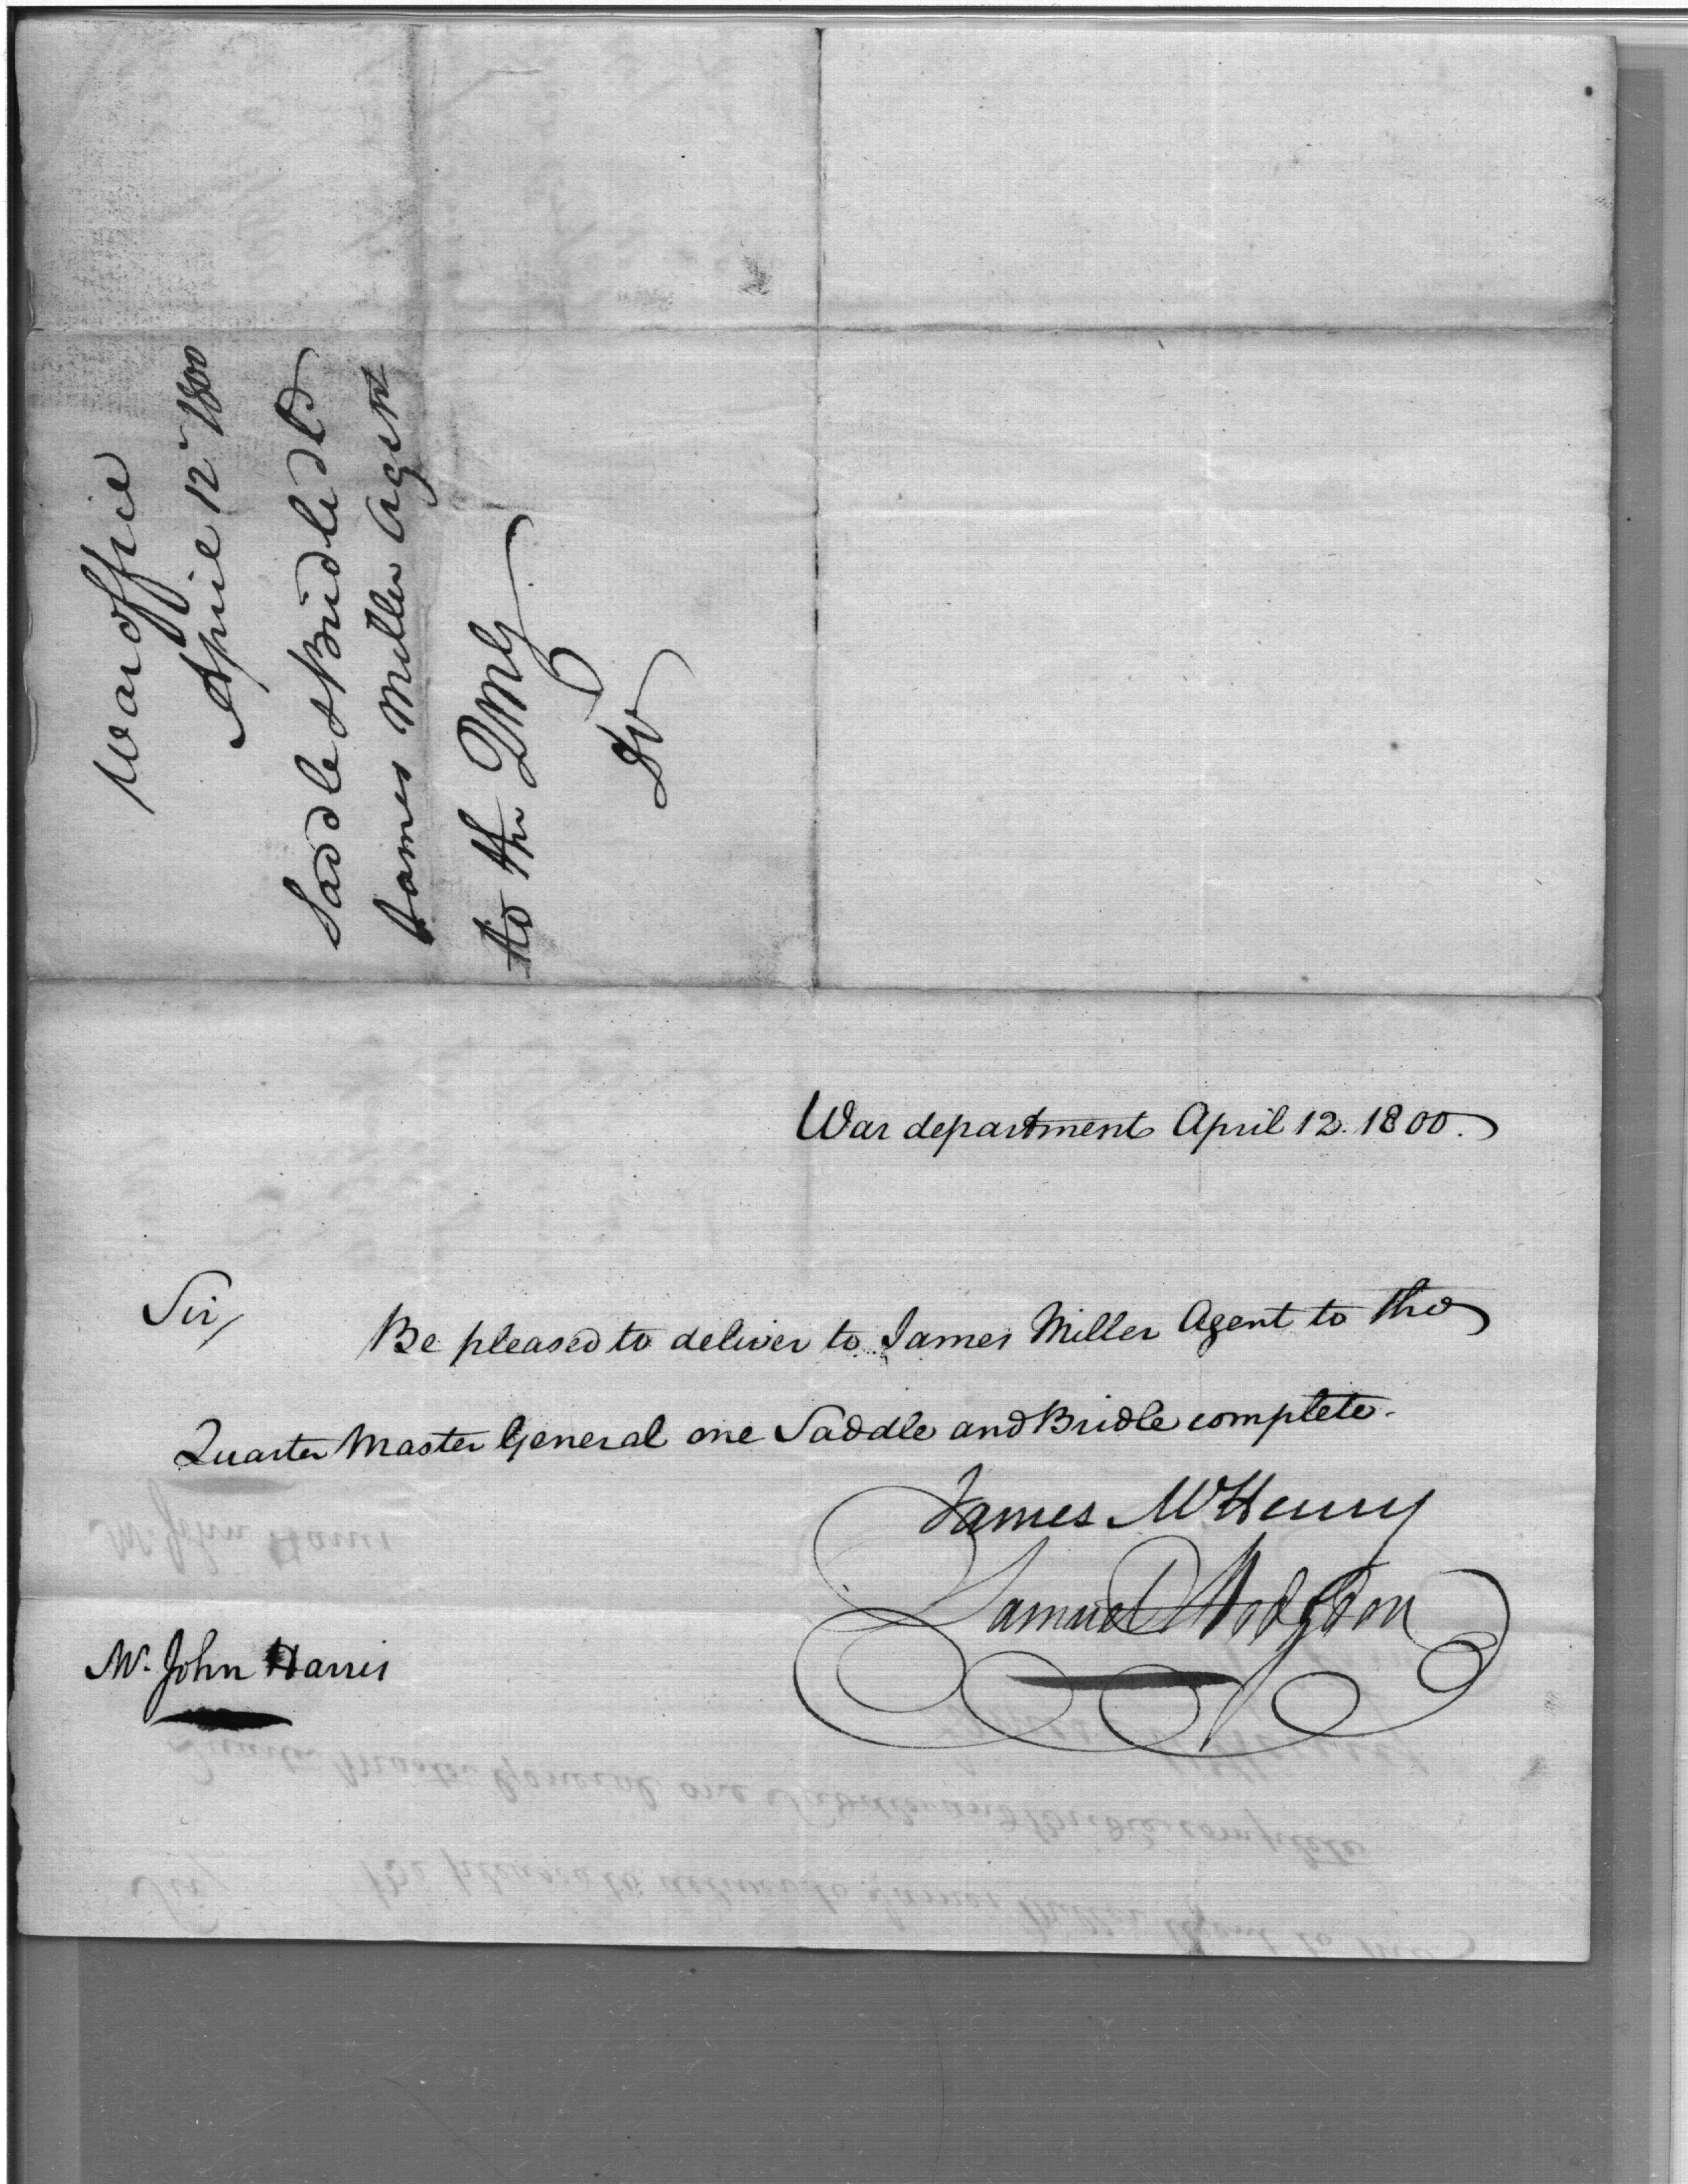 War office
April 12th 1800
Saddle & Bridle dd
James Miller Agent
to the QMG
War department April 12. 1800.
Sir,
Be pleased to deliver to James Miller Agent to the
Quarter Master General one Saddle and Bridle complete.
James McHenry
Samuel Hodgdon
Mr. John Harris